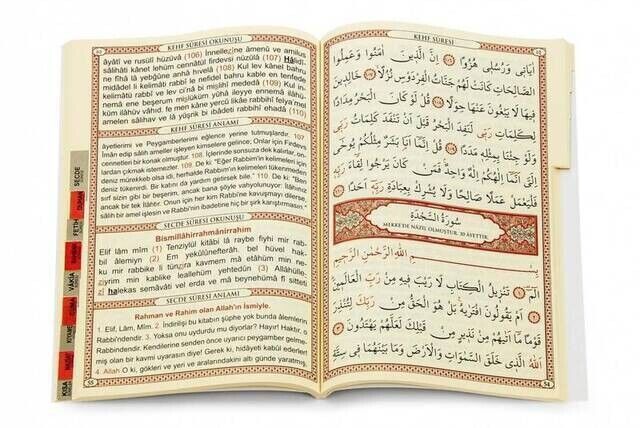 KEHF SÛRESİ OKUNUŞU
âyâtî ve rusulî hüzüvâ (106) İnnellezîne âmenû ve amilus
sâlihâti kânet lehüm cennâtül firdevsi nüzülâ (107) Hâlidî-
ne fîhâ lâ yebğûne anhâ hıvelâ (108) Kul lev kânel bahru
midâdel li kelimâti rabbî le nefidel bahru kable en tenfede
kelimâtü rabbî ve lev ci'nâ bi mislihî mededâ (109) Kul in-
nemâ ene beşerum mislüküm yûhâ ileyye ennemâ ilâhü-
küm ilâhüv vâhid, fe men kâne yercû likâe rabbihî felya'mel
amelen sâlihav ve lâ yüşrik bi ibâdeti rabbihî ehadâ (110)
KEHF SÛRESİ ANLAMI
âyetlerimi ve Peygamberlerimi eğlence yerine tutmuşlardır. 107
İman edip salih ameller işleyen kimselere gelince; Onlar için Firdevs
cennetleri bir konak olmuştur. 108. İçlerinde sonsuza dek kalırlar, on-
lardan çıkmak istemezler. 109. De ki: "Eğer Rabbim'in kelimeleri için
deniz mürekkeb olsa idi, herhalde Rabbim'in kelimeleri tükenmeden
deniz tükenirdi. Bir katını da yardım getirsek bile." 110. De ki: "Ben
sırf sizin gibi bir beşerim, ancak bana şöyle vahyolunuyor: İlâhınız
ancak bir tek İlâhtır. Onun için her kim Rabbi'ne kavuşmayı dilerse,
sâlih bir amel işlesin ve Rabbi'nin ibadetine hiç bir şirk karıştırmasın."
SECDE SÛRESİ OKUNUŞU
Bismillâhirrahmânirrahîm
Elif lâm mîm (1) Tenzîylül kitâbi lâ raybe fîyhi mir rab-
bil âlemiyn (2) Em yekûlûnefterâh, bel hüvel hak-
ku mir rabbike li tünzira kavmem mâ etâhüm min ne-
ziyrim min kablike leallehüm yehtedûn (3) Allâhülle-
zî halekas semâvâti vel erda ve mâ beynehümâ fî sitteti
SECDE SÛRESİ ANLAMI
Rahman ve Rahim olan Allah'ın İsmiyle.
1. Elif, Lâm, Mîm. 2. İndirilişi bu kitabın şüphe yok bunda âlemlerin
Rabbi'ndendir. 3. Yoksa onu uydurdu mu diyorlar? Hayır! Haktır, o
Rabbi'ndendir. Kendilerine senden önce uyarıcı peygamber gelme-
miş olan bir kavmi uyarasın diye! Gerek ki, hidâyeti kabul ederler!
4. Allah O ki, gökleri ve yeri ve aralarındakini altı günde yaratmış,
SECDE
DUHAN
FETİH
VÂKIA
KIYAME
KISA
KEHF SÛRESİ
اٰيَاتٖي وَرُسُلٖي هُزُوًا ۝ اِنَّ الَّذٖينَ اٰمَنُوا وَعَمِلُوا
الصَّالِحَاتِ كَانَتْ لَهُمْ جَنَّاتُ الْفِرْدَوْسِ نُزُلًا ۝ خَالِدٖينَ
فٖيهَا لَا يَبْغُونَ عَنْهَا حِوَلًا ۝ قُلْ لَوْ كَانَ الْبَحْرُ مِدَادًا
لِكَلِمَاتِ رَبّٖي لَنَفِدَ الْبَحْرُ قَبْلَ اَنْ تَنْفَدَ كَلِمَاتُ رَبّٖي
وَلَوْ جِئْنَا بِمِثْلِهٖ مَدَدًا ۝ قُلْ اِنَّمَا اَنَا بَشَرٌ مِثْلُكُمْ يُوحٰى
اِلَيَّ اَنَّمَا اِلٰهُكُمْ اِلٰهٌ وَاحِدٌ فَمَنْ كَانَ يَرْجُوا لِقَاءَ رَبِّهٖ
فَلْيَعْمَلْ عَمَلًا صَالِحًا وَلَا يُشْرِكْ بِعِبَادَةِ رَبِّهٖ اَحَدًا ۝
سُورَةُ السَّجْدَةِ
MEKKE'DE NÂZİL OLMUŞTUR, 30 ÂYETTİR.
بِسْمِ اللهِ الرَّحْمٰنِ الرَّحٖيمِ
الٓمٓ ۝ تَنْزٖيلُ الْكِتَابِ لَا رَيْبَ فٖيهِ مِنْ رَبِّ الْعَالَمٖينَ
۝ اَمْ يَقُولُونَ افْتَرٰيهُ بَلْ هُوَ الْحَقُّ مِنْ رَبِّكَ لِتُنْذِرَ
قَوْمًا مَا اَتٰيهُمْ مِنْ نَذٖيرٍ مِنْ قَبْلِكَ لَعَلَّهُمْ يَهْتَدُونَ ۝
اَللهُ الَّذٖي خَلَقَ السَّمٰوَاتِ وَالْاَرْضَ وَمَا بَيْنَهُمَا فٖي سِتَّةِ